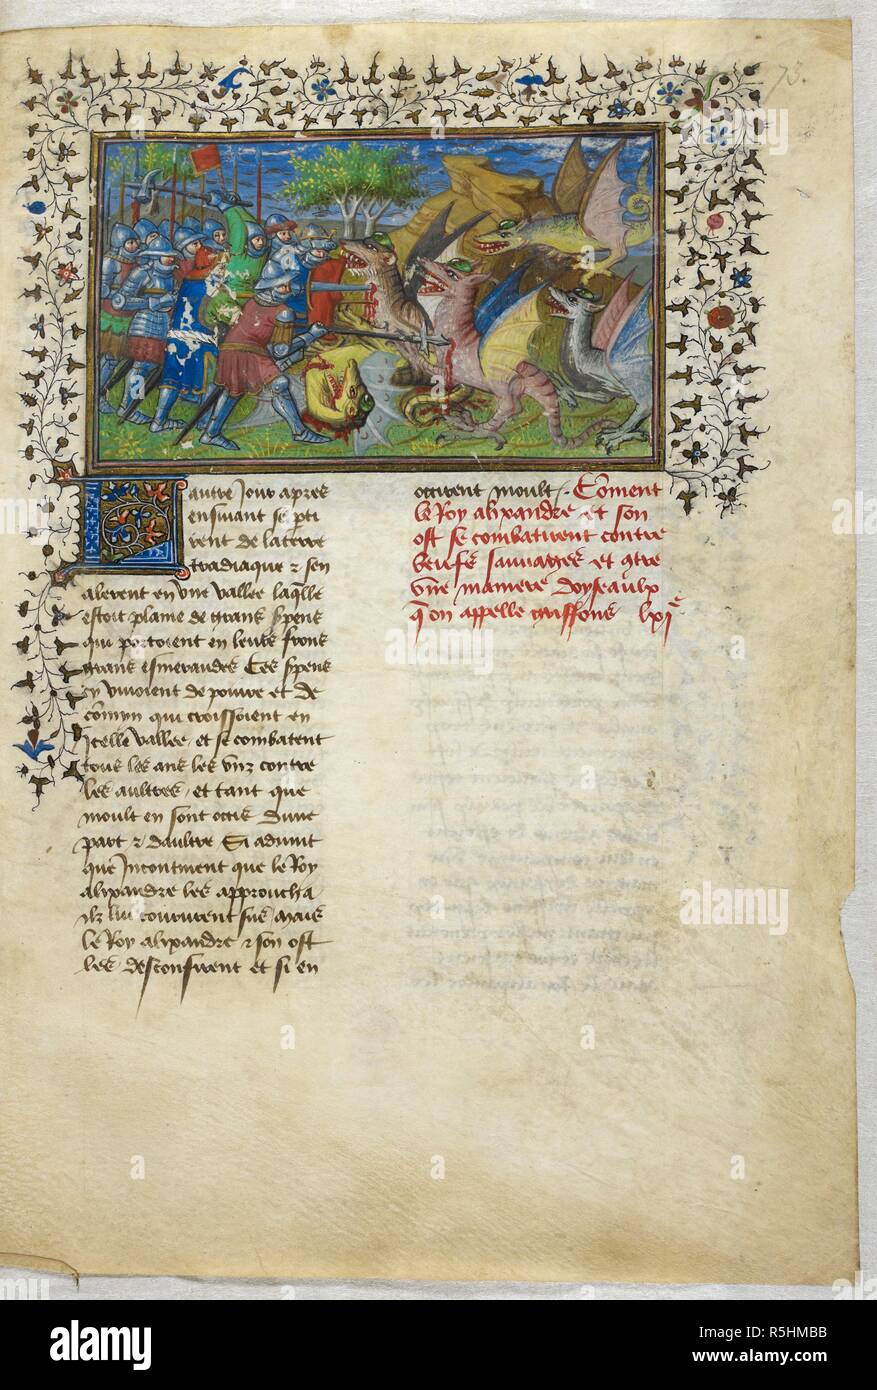 73.
L autre jour apres
ensuivant se parti
rent de la terre
tradiaque & sen
alerent en une vallee laqlle
estoit plaine de grans serpens
qui portoient en leurs frons
grans esmeraudes Ces serpens
cy vivoient de poivre et de
comyn qui croissoient en
Icelle vallee, et se combatent
tous les ans les unz contre
les aultres, et tant que
moult en sont occis dune
part & daultre Si advint
que Incontinent que le Roy
alixandre les approucha
ilz lui coururent sus, mais
le Roy alixandre & son ost
les desconfirent et si en
occirent moult. Coment
le Roy alixandre et son
ost se combatirent contre
beufs sauvages et gtre
une maniere doyseaulx
q on appelle griffons lxij
alamy
Image ID: R5HMBB
www.alamy.com